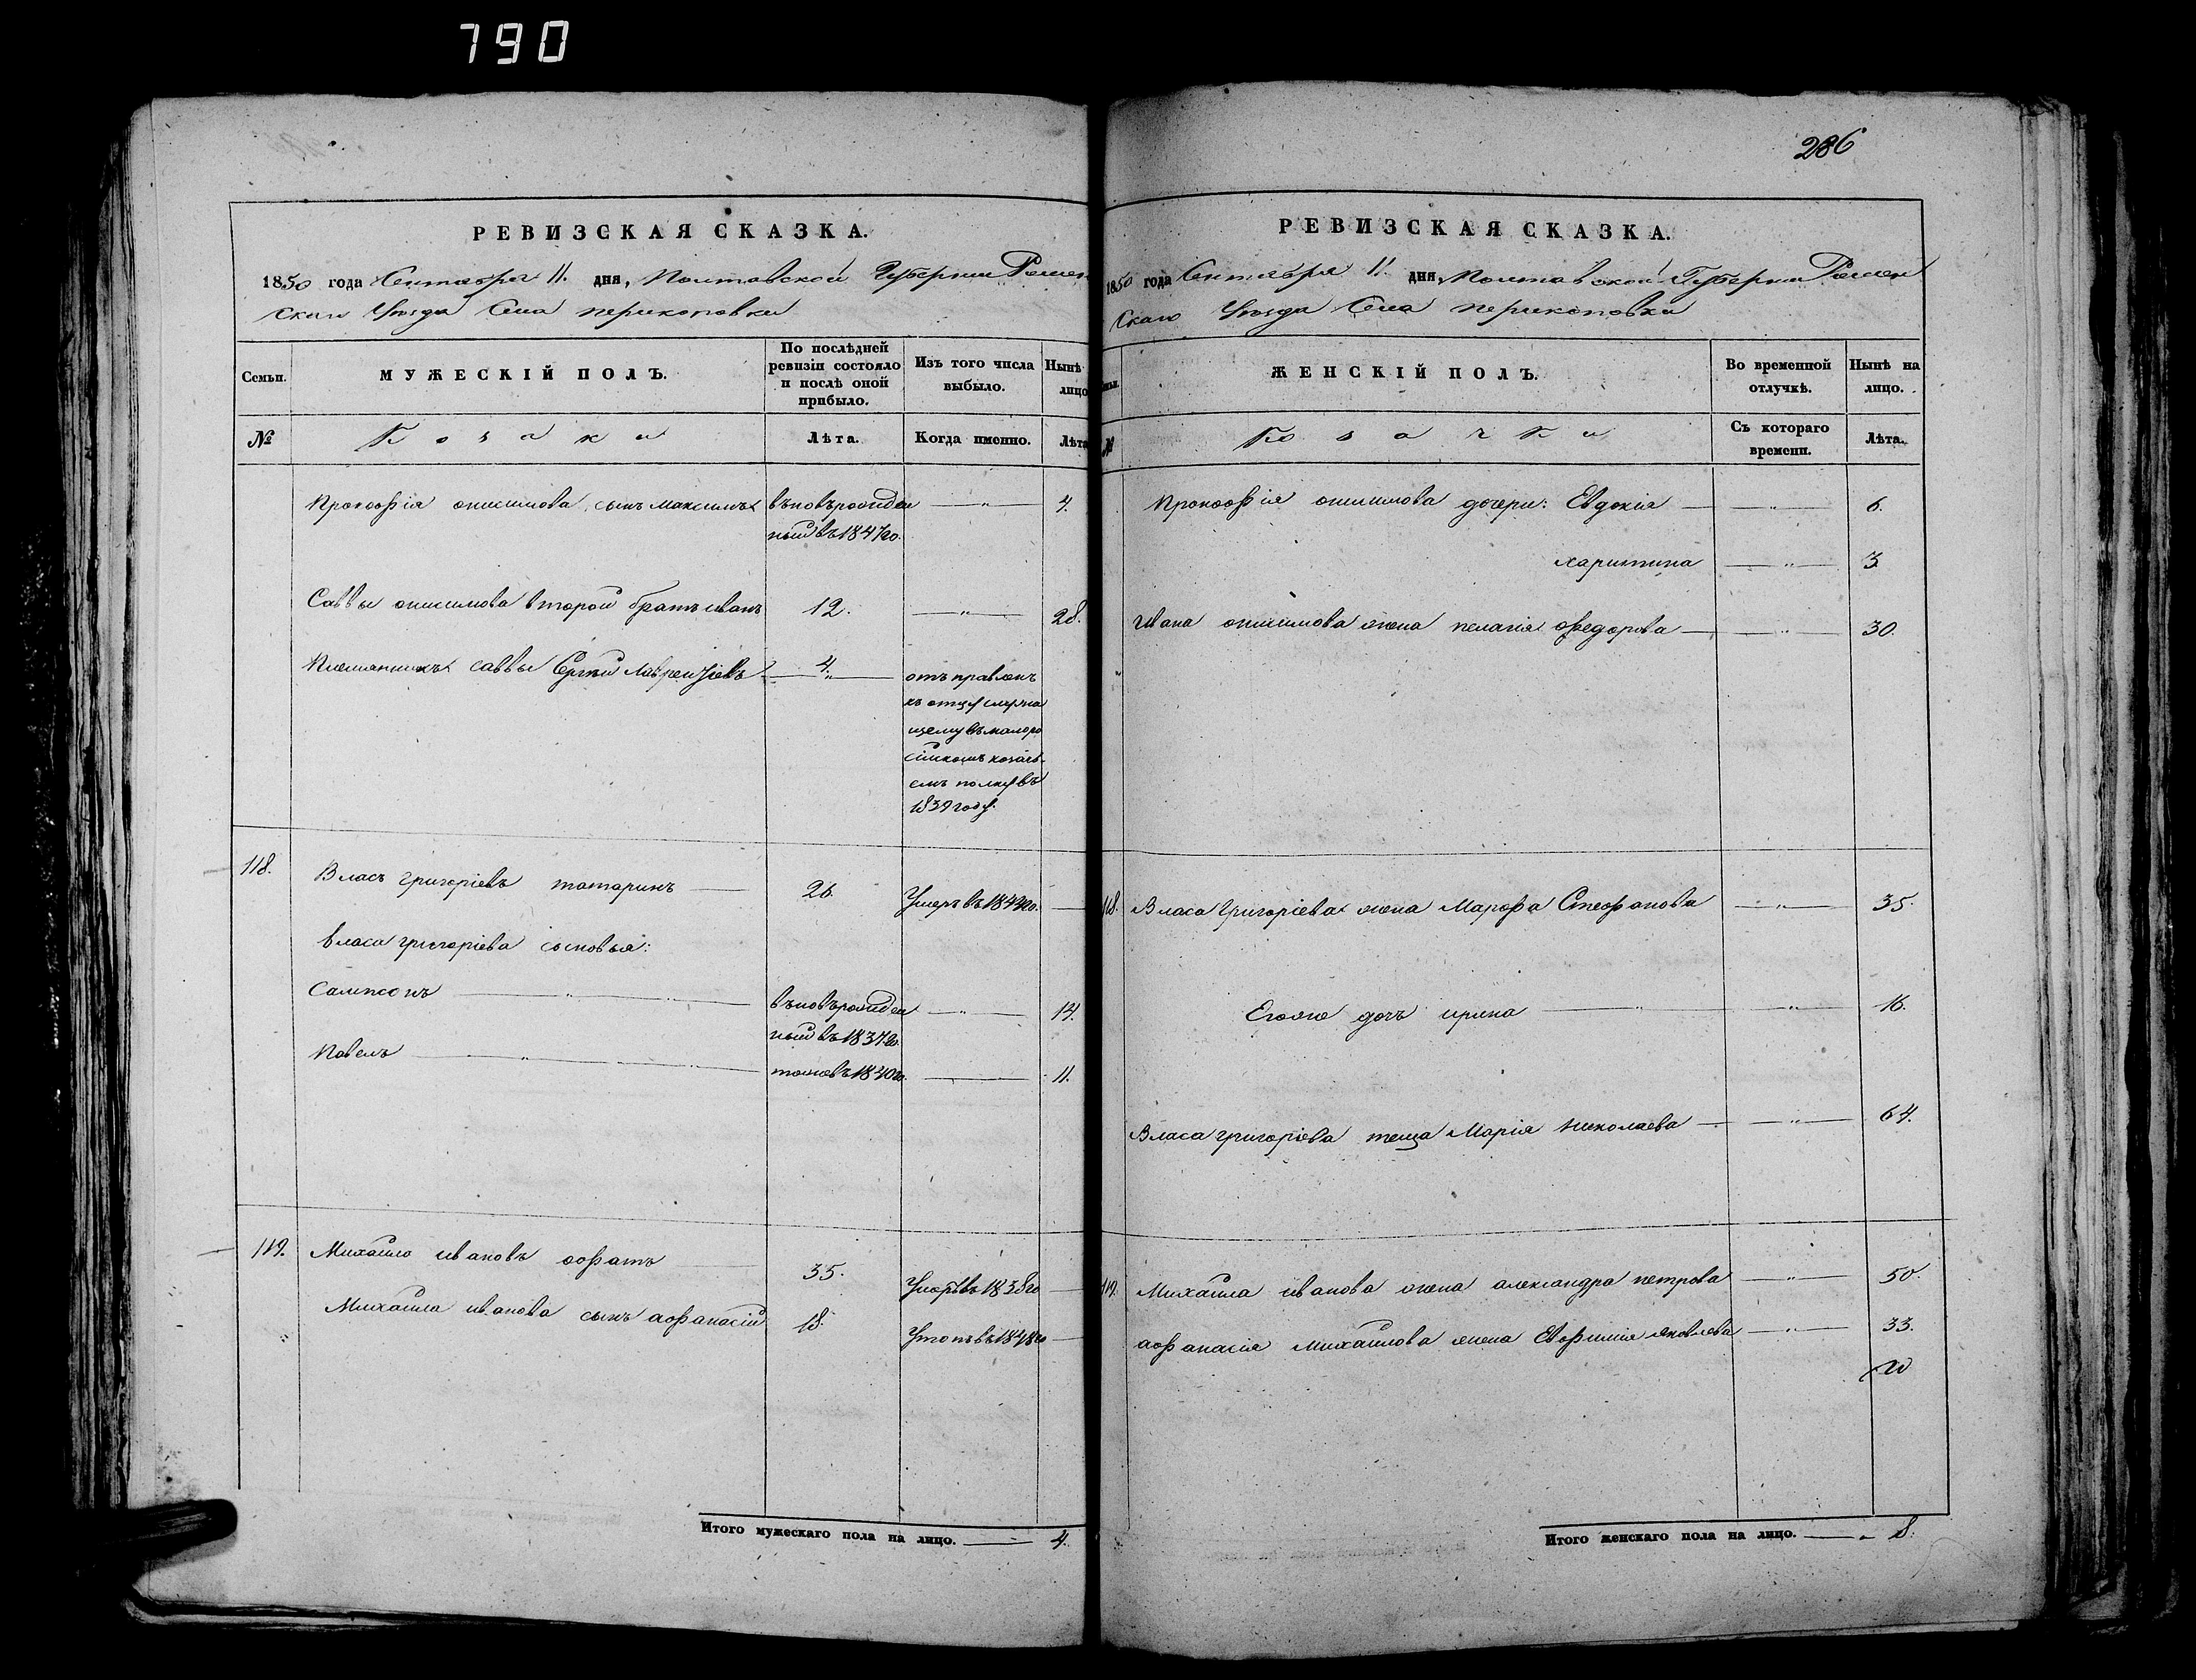 790
286
РЕВИЗСКАЯ СКАЗКА.
1850 года Сентября 11. дня, Полтавской Губернии Ромен
скаго Уѣзда Села перекоповки
Семьи.
МУЖЕСКІЙ ПОЛЪ.
По послѣдней
ревизіи состояло
и послѣ оной
прибыло.
Изъ того числа
выбыло.
Нынѣ
лицо
№
Козаки
Лѣта.
Когда именно.
Лѣта
Прокофія онисимова сынъ максимъ вновьрожден — " — 4.
ный въ 1847го.
Саввы онисимова второй братъ иванъ 12. — " — 28.
Племянникъ саввы Сергѣй Лаврентіевъ 4. отправленъ
къ отцу служа
щему въ малоро
сійскомъ козачь
емъ полку въ
1839 году.
118. Власъ григоріевъ татаринъ — 26. Умеръ въ 184 го. —
власа григоріева сыновья:
Сампсонъ — " — вновьрожден — " — 14.
ный въ 1837го.
Павелъ — " — тоже въ 1840го. — 11.
119. Михайло ивановъ — 35. Умеръ въ 1838го —
Михайла иванова сынъ афанасій 18. Утопъ въ 1848го —
Итого мужескаго пола на лицо. — 4.
РЕВИЗСКАЯ СКАЗКА.
1850 года Сентября 11. дня, Полтавской Губернии Ромен
скаго Уѣзда Села перекоповки
ЖЕНСКІЙ ПОЛЪ.
Во временной
отлучкѣ.
Нынѣ на
лицо.
№
Козачки
Съ котораго
времени.
Лѣта.
Прокофія онисимова дочери: Евдокія — — " — 6.
харитина — " — 3
Ивана онисимова жена пелагія федорова — — " — 30.
118. Власа григоріева жена Марфа Стефанова — " — 35.
Егоже дочь ирина — " — — " — 16.
Власа григоріева теща Марія николаева — — " — 64.
119. Михайла иванова жена александра петрова — " — 50.
афанасія михайлова жена Евфимія яковлева — " — 33.
Итого женскаго пола на лицо. — 8.